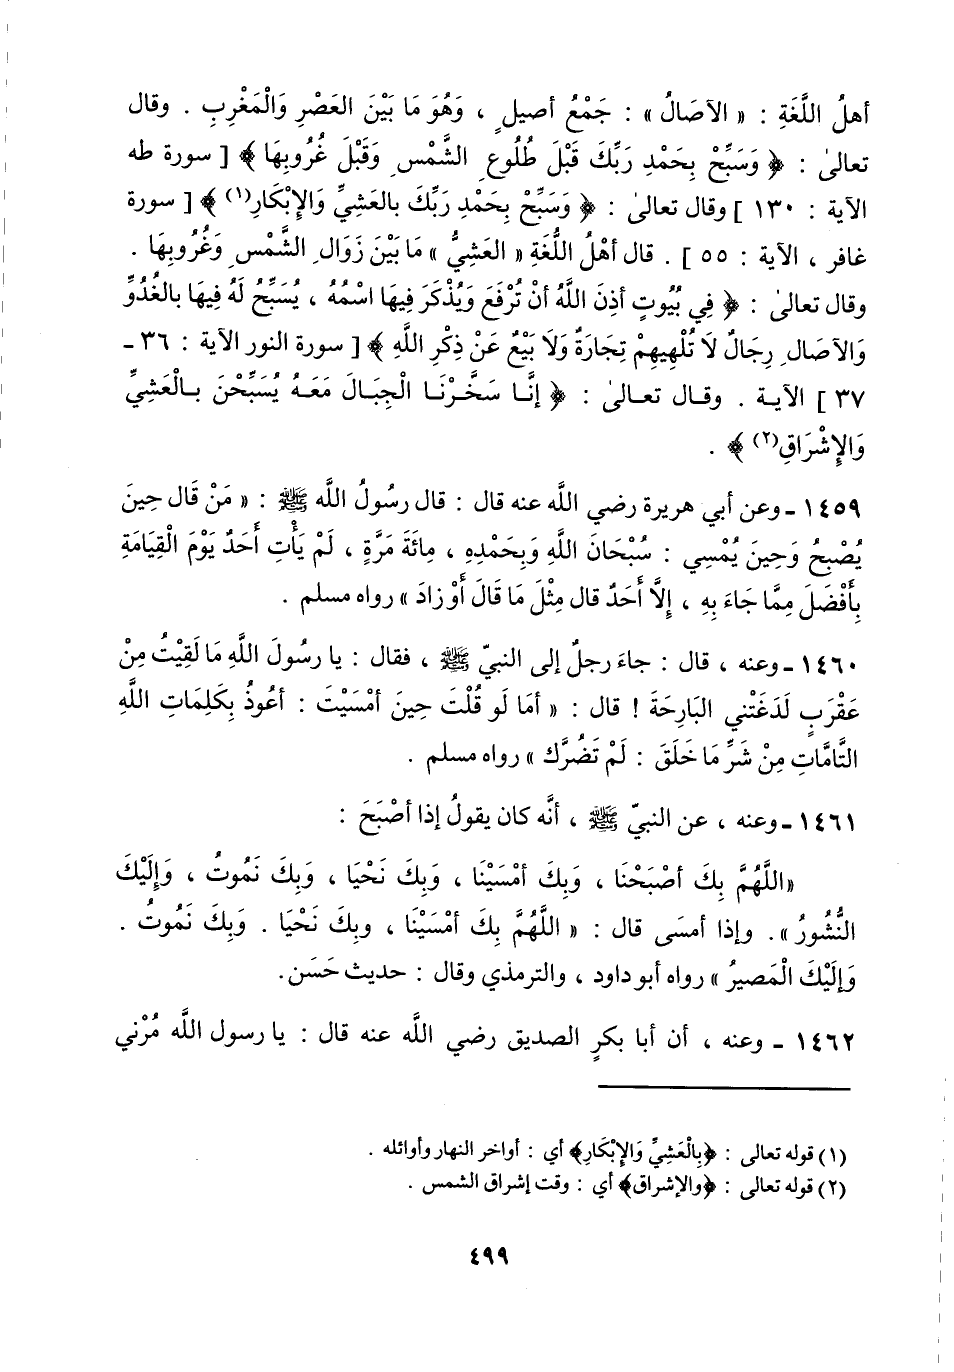 أهلُ اللَّغَةِ : « الآصَالُ » : جَمْعُ أصيلٍ ، وَهُوَ مَا بَيْنَ العَصْرِ وَالْمَغْرِبِ . وقال
تعالىٰ : ﴿ وَسَبِّحْ بِحَمْدِ رَبِّكَ قَبْلَ طُلُوعِ الشَّمْسِ وَقَبْلَ غُرُوبِهَا ﴾ [ سورة طه
الآية : ١٣٠ ] وقال تعالىٰ : ﴿ وَسَبِّحْ بِحَمْدِ رَبِّكَ بالعَشِيِّ وَالإِبْكَارِ(١) ﴾ [ سورة
غافر ، الآية : ٥٥ ] . قال أهْلُ اللُّغَةِ « العَشِيُّ » مَا بَيْنَ زَوَالِ الشَّمْسِ وَغُرُوبِهَا .
وقال تعالىٰ : ﴿ فِي بُيُوتٍ أذِنَ اللَّهُ أنْ تُرْفَعَ وَيُذْكَرَ فِيهَا اسْمُهُ ، يُسَبِّحُ لَهُ فِيهَا بالغُدُوِّ
وَالآصَالِ رِجَالٌ لَا تُلْهِيهِمْ تِجَارَةٌ وَلَا بَيْعٌ عَنْ ذِكْرِ اللَّهِ ﴾ [ سورة النور الآية : ٣٦ ـ
٣٧ ] الآية . وقال تعالىٰ : ﴿ إنَّا سَخَّرْنَا الْجِبَالَ مَعَهُ يُسَبِّحْنَ بالْعَشِيِّ
وَالإِشْرَاقِ(٢) ﴾ .
١٤٥٩ ـ وعن أبي هريرة رضي اللَّه عنه قال : قال رسُولُ اللَّه ﷺ : « مَنْ قَال حِينَ
يُصْبِحُ وَحِينَ يُمْسِي : سُبْحَانَ اللَّهِ وَبِحَمْدِهِ ، مِائَةَ مَرَّةٍ ، لَمْ يَأْتِ أَحَدٌ يَوْمَ الْقِيَامَةِ
بِأَفْضَلَ مِمَّا جَاءَ بِهِ ، إِلَّا أَحَدٌ قال مِثْلَ مَا قَالَ أَوْ زادَ » رواه مسلم .
١٤٦٠ ـ وعنه ، قال : جاءَ رجلٌ إلى النبيّ ﷺ ، فقال : يا رسُولَ اللَّهِ مَا لَقِيْتُ مِنْ
عَقْرَبٍ لَدَغَتْني البَارِحَةَ ! قال : « أمَا لَو قُلْتَ حِينَ أمْسَيْتَ : أعُوذُ بِكَلِمَاتِ اللَّهِ
التَّامَّاتِ مِنْ شَرِّ مَا خَلَقَ : لَمْ تَضُرَّك » رواه مسلم .
١٤٦١ ـ وعنه ، عن النبيّ ﷺ ، أنَّه كان يقولُ إذا أصْبَحَ :
«اللَّهُمَّ بِكَ أصْبَحْنَا ، وَبِكَ أمْسَيْنَا ، وَبِكَ نَحْيَا ، وَبِكَ نَمُوتُ ، وَإِلَيْكَ
النُّشُورُ ». وإذا أمسَى قال : « اللَّهُمَّ بِكَ أمْسَيْنَا ، وبِكَ نَحْيَا . وَبِكَ نَمُوتُ .
وَإِلَيْكَ الْمَصيرُ » رواه أبو داود ، والترمذي وقال : حديث حَسَن.
١٤٦٢ ـ وعنه ، أن أبا بكرٍ الصديق رضي اللَّه عنه قال : يا رسول اللَّه مُرْني
(١) قوله تعالى : ﴿بِالْعَشِيِّ وَالإِبْكَارِ﴾ أي : أواخر النهار وأوائله .
(٢) قوله تعالى : ﴿والإشراق﴾ أي : وقت إشراق الشمس .
٤٩٩